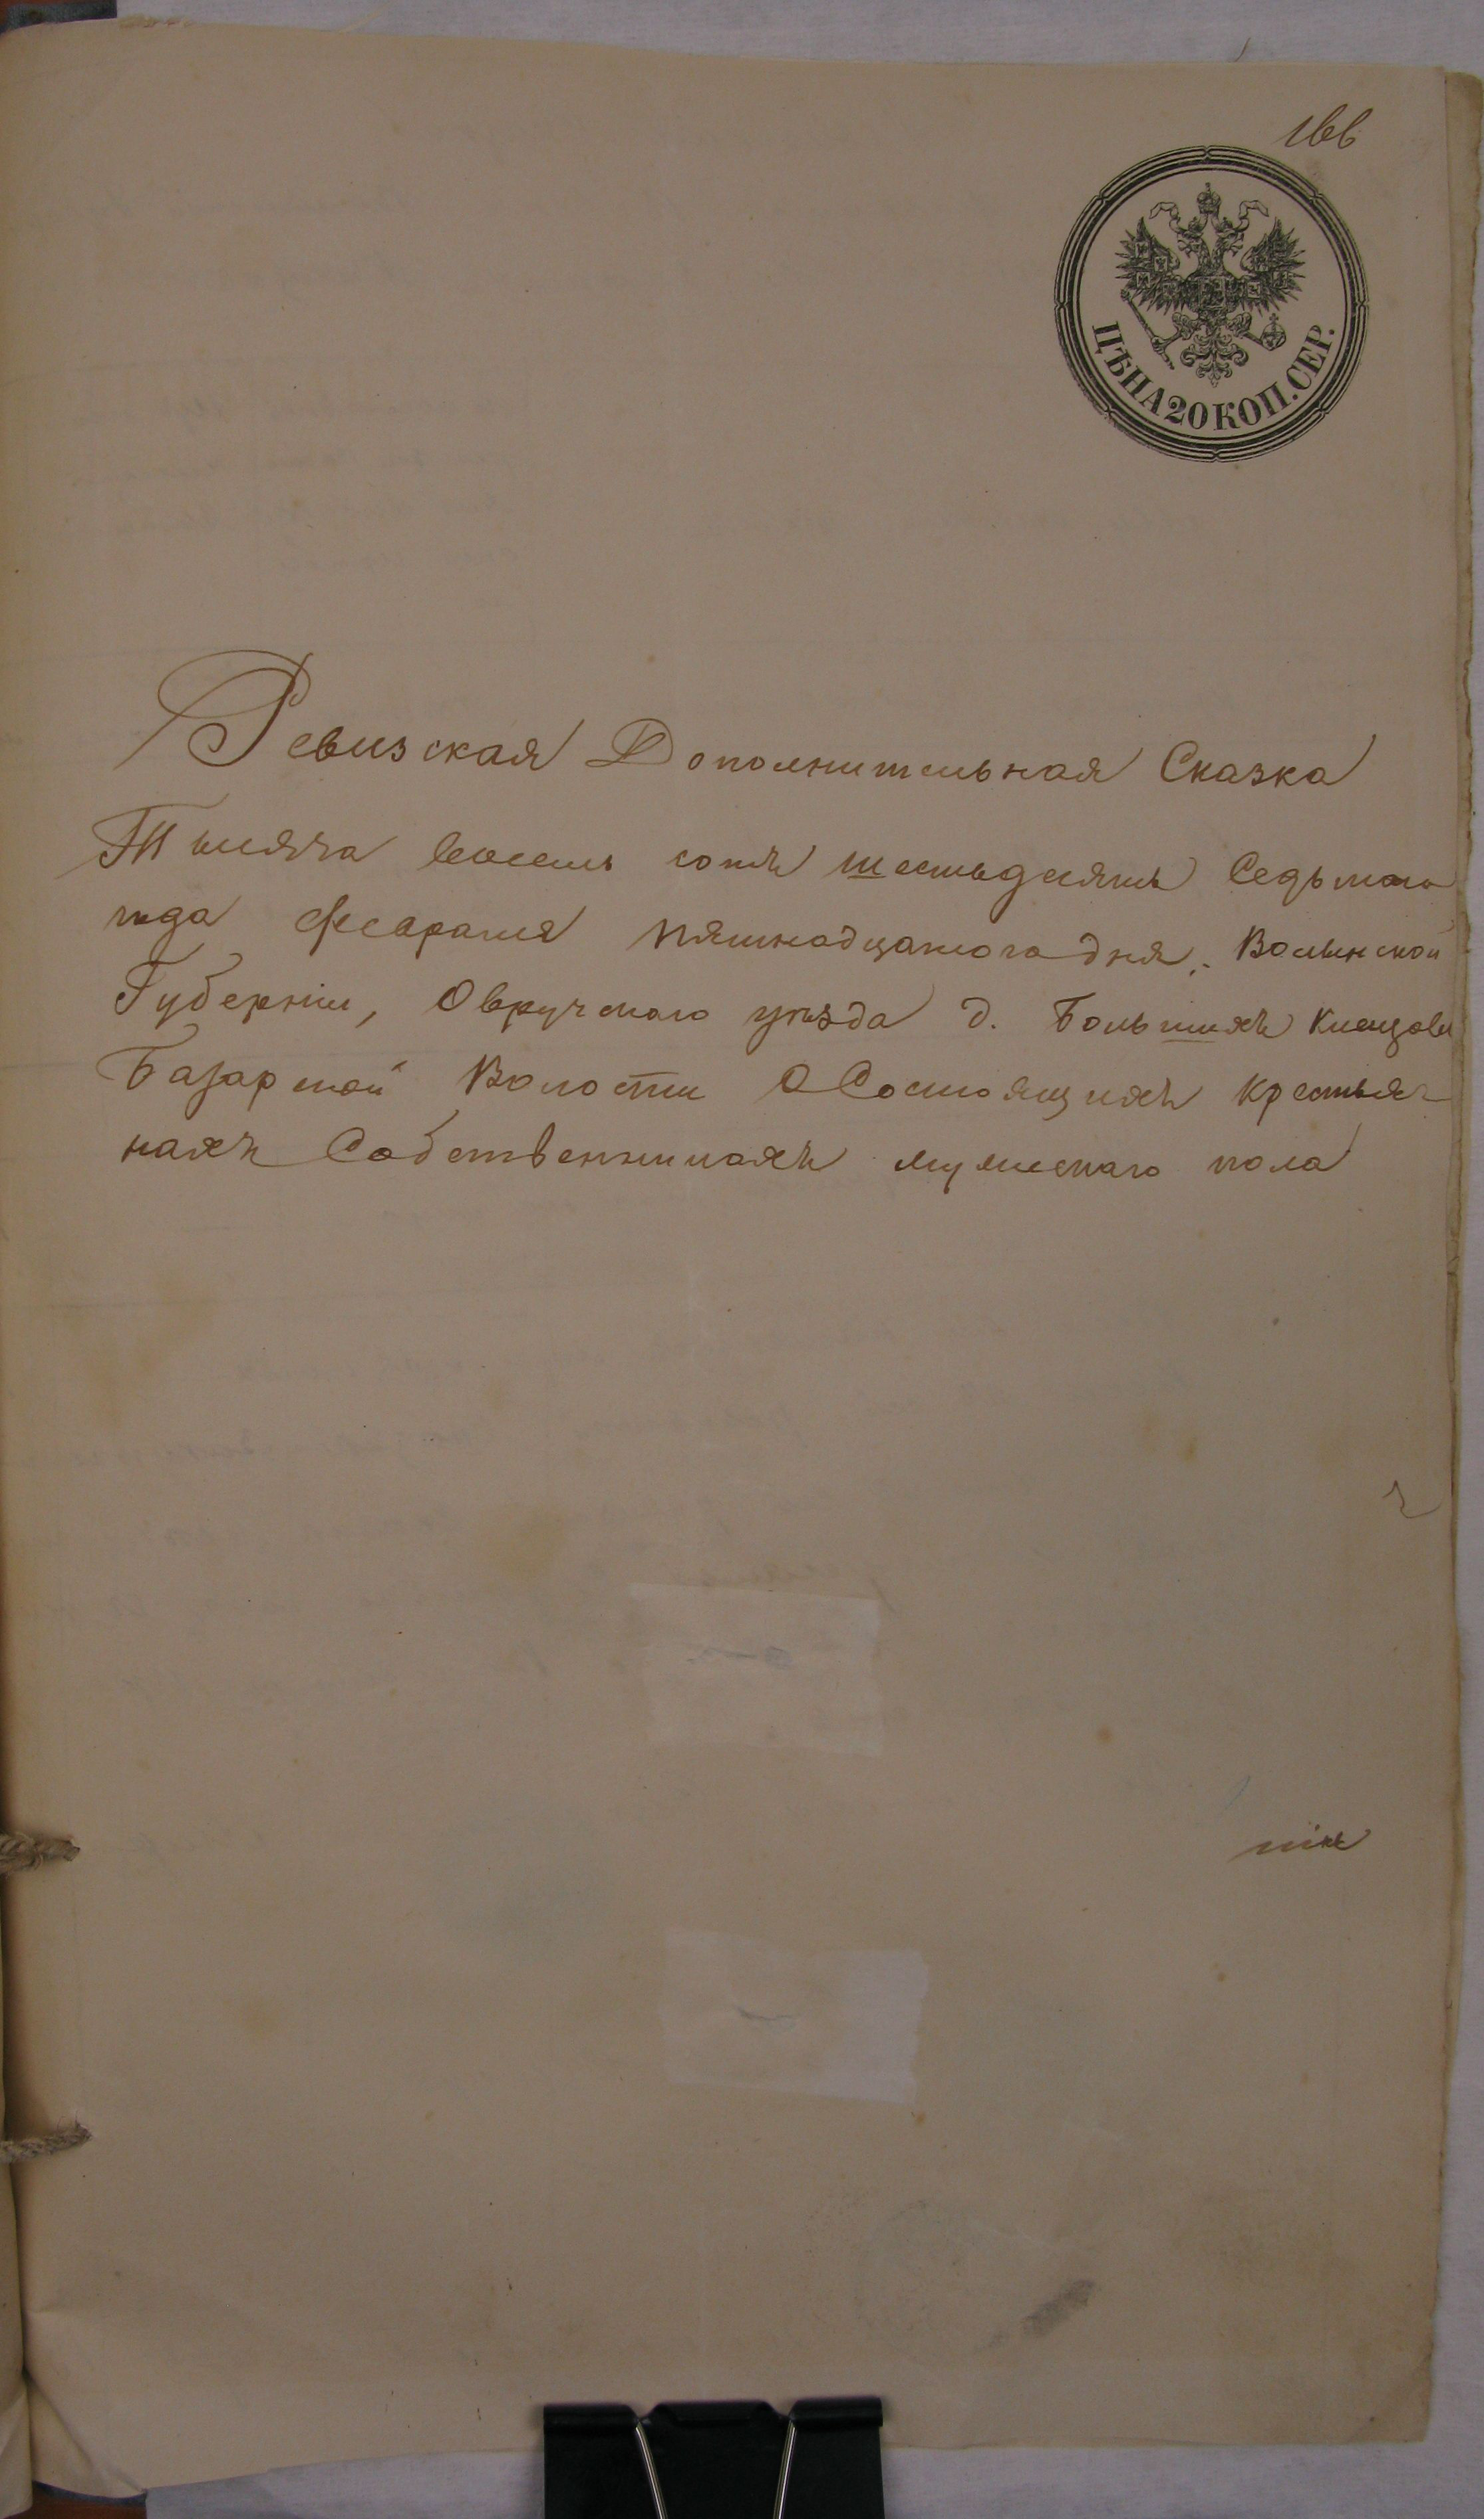 166
ЦѢНА 20 КОП. СЕР.
Ревизская Дополнительная Сказка
Тысяча восемь сотъ шестьдесятъ Седьмаго
года февраля пятнадцатого дня, Волынской
Губерніи, Овручскаго уѣзда д. Большихъ
Базарской Волости О Состоящихъ крестья-
нахъ Собственникахъ мужескаго пола